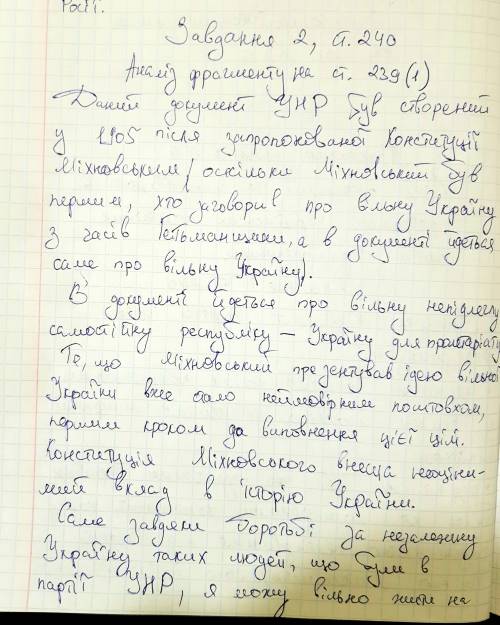 Росії.
Завдання 2, ст. 240
Аналіз фрагменту на ст. 239 (1)
Даний документ УНР був створений
у 1905 після запропонованої Конституції
Міхновським (оскільки Міхновський був
першим, хто заговорив про вільну Україну
з часів Гетьманщини, а в документі йдеться
саме про вільну Україну).
В документі йдеться про вільну непідлеглу
самостійну республіку – Україну для пролтаріату.
Те, що Міхновський презентував ідею вільної
України вже стало неймовірним поштовхом,
першим кроком до виповнення цієї цілі.
Конституція Міхновського внесла неоціни-
мий вклад в історію України.
Саме завдяки боротьбі за незалежну
Україну таких людей, що були в
партії УНР, я можу вільно жити на